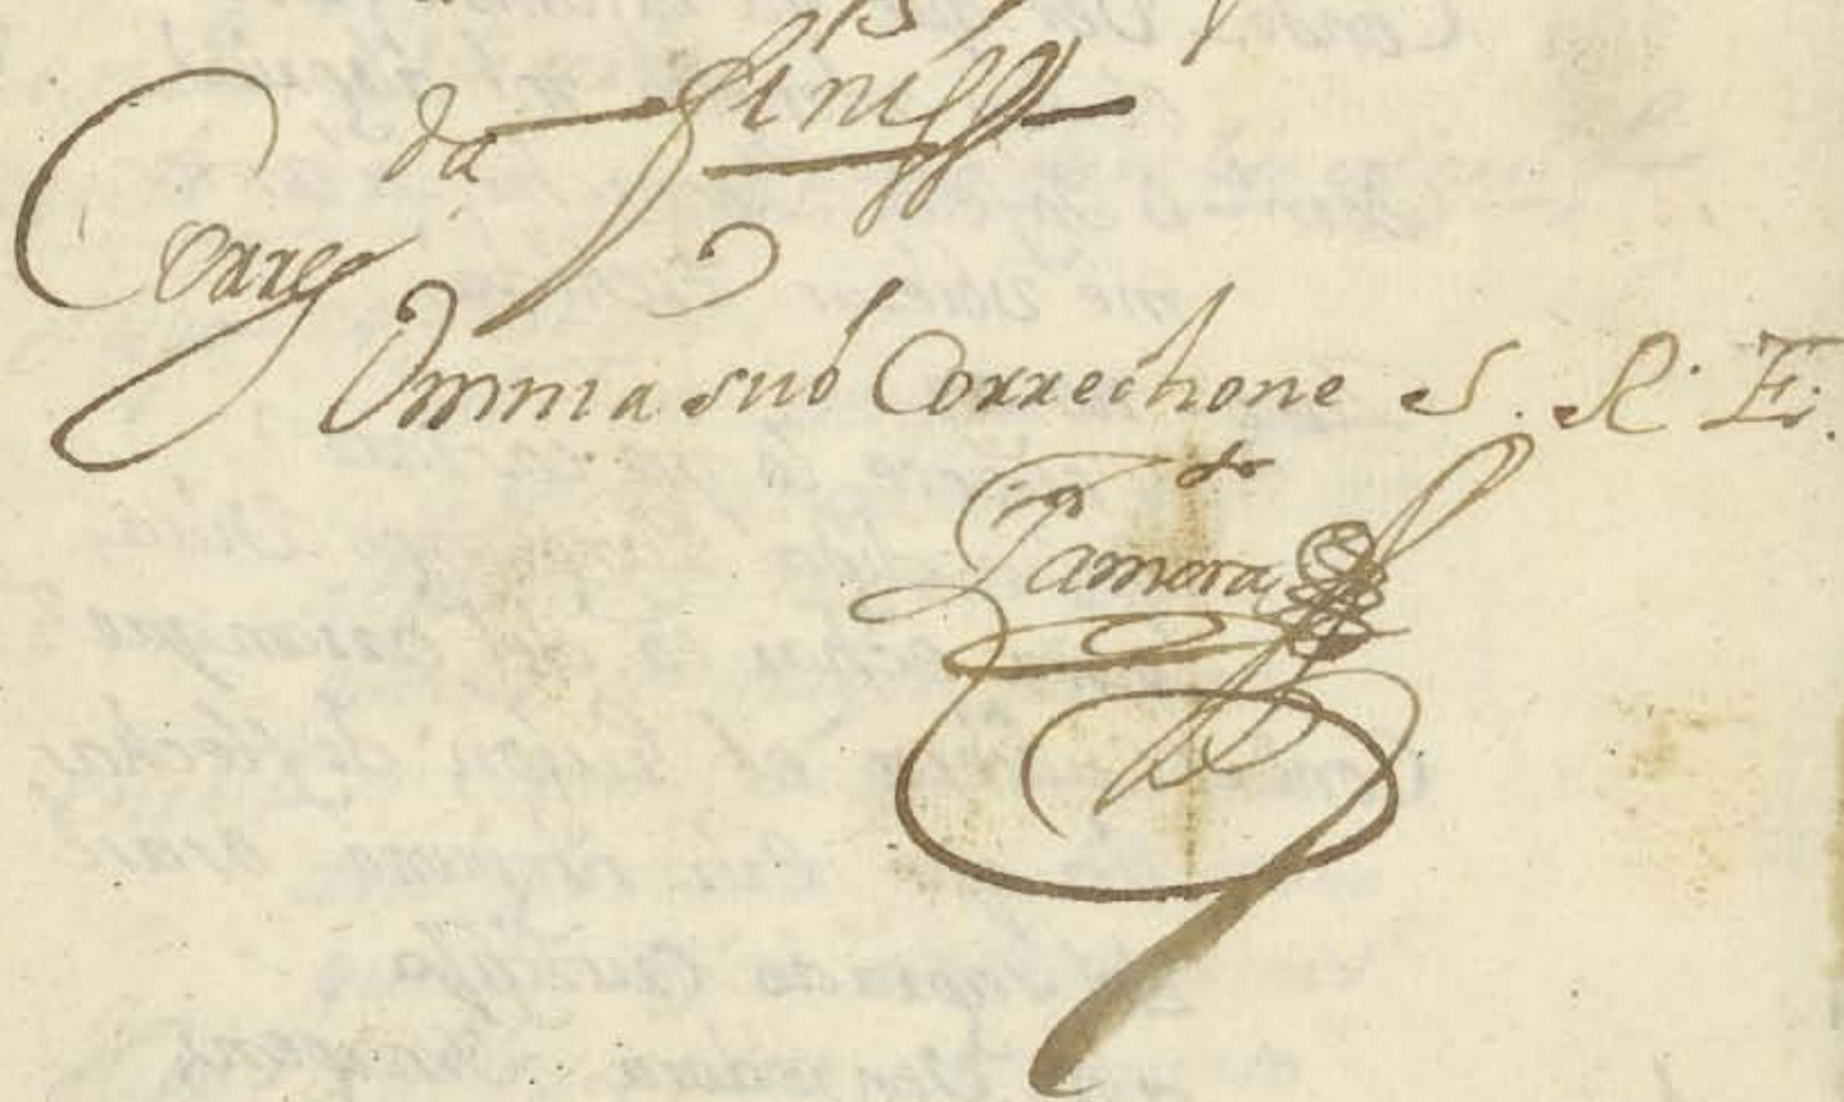 Finis
Correg.da
Omnia sub Correctione S. R. E.
Zamora